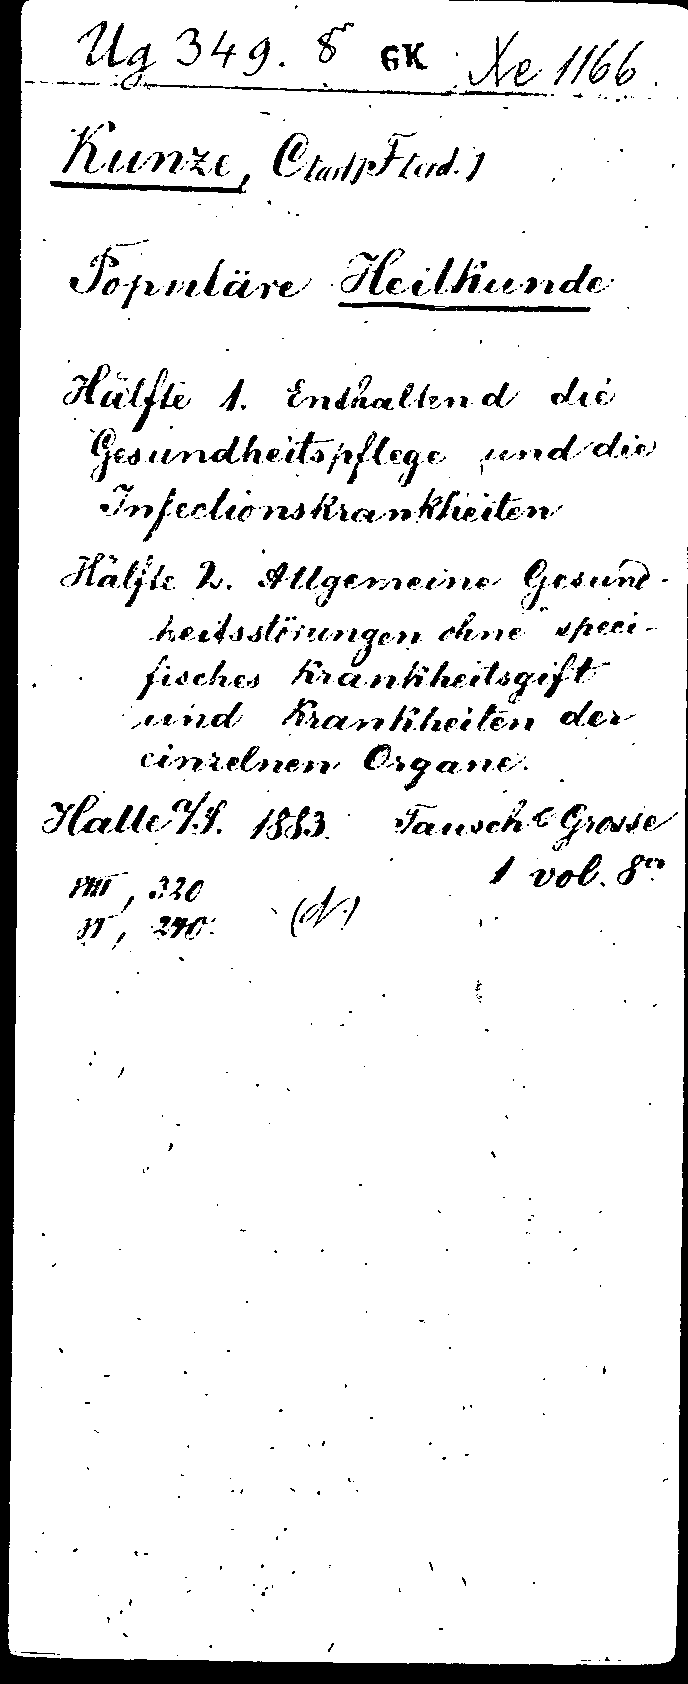 Ug 349. 8° GK Xe 1166.
Kunze, C(arl) F(erd.)
Populäre Heilkunde
Hälfte 1. Enthaltend die
Gesundheitspflege und die
Infectionskrankheiten
Hälfte 2. Allgemeine Gesund-
heitsstörungen ohne speci-
fisches Krankheitsgift
und Krankheiten der
einzelnen Organe.
Halle a/S. 1883. Tausch & Grosse
1 vol. 8°
VIII, 320
VI, 240.